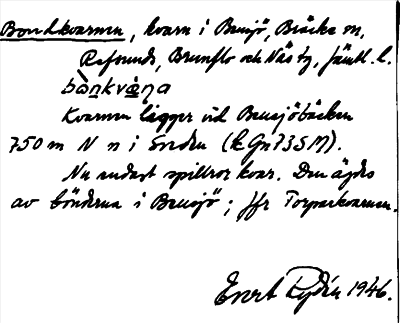 Bondkvarnen, kvarn i Bensjö, Bräcke sn,
Refsunds, Brunflo och Näs tg, Jämtl. l.
Kvarnen ligger vid Bensjöbäcken
750 m N n i Sreden (k Gn 735 M).
Nu endast spillror kvar. Den ägdes
av bönderna i Bensjö; jfr Torparkvarnen.
Evert Rydén 1946.